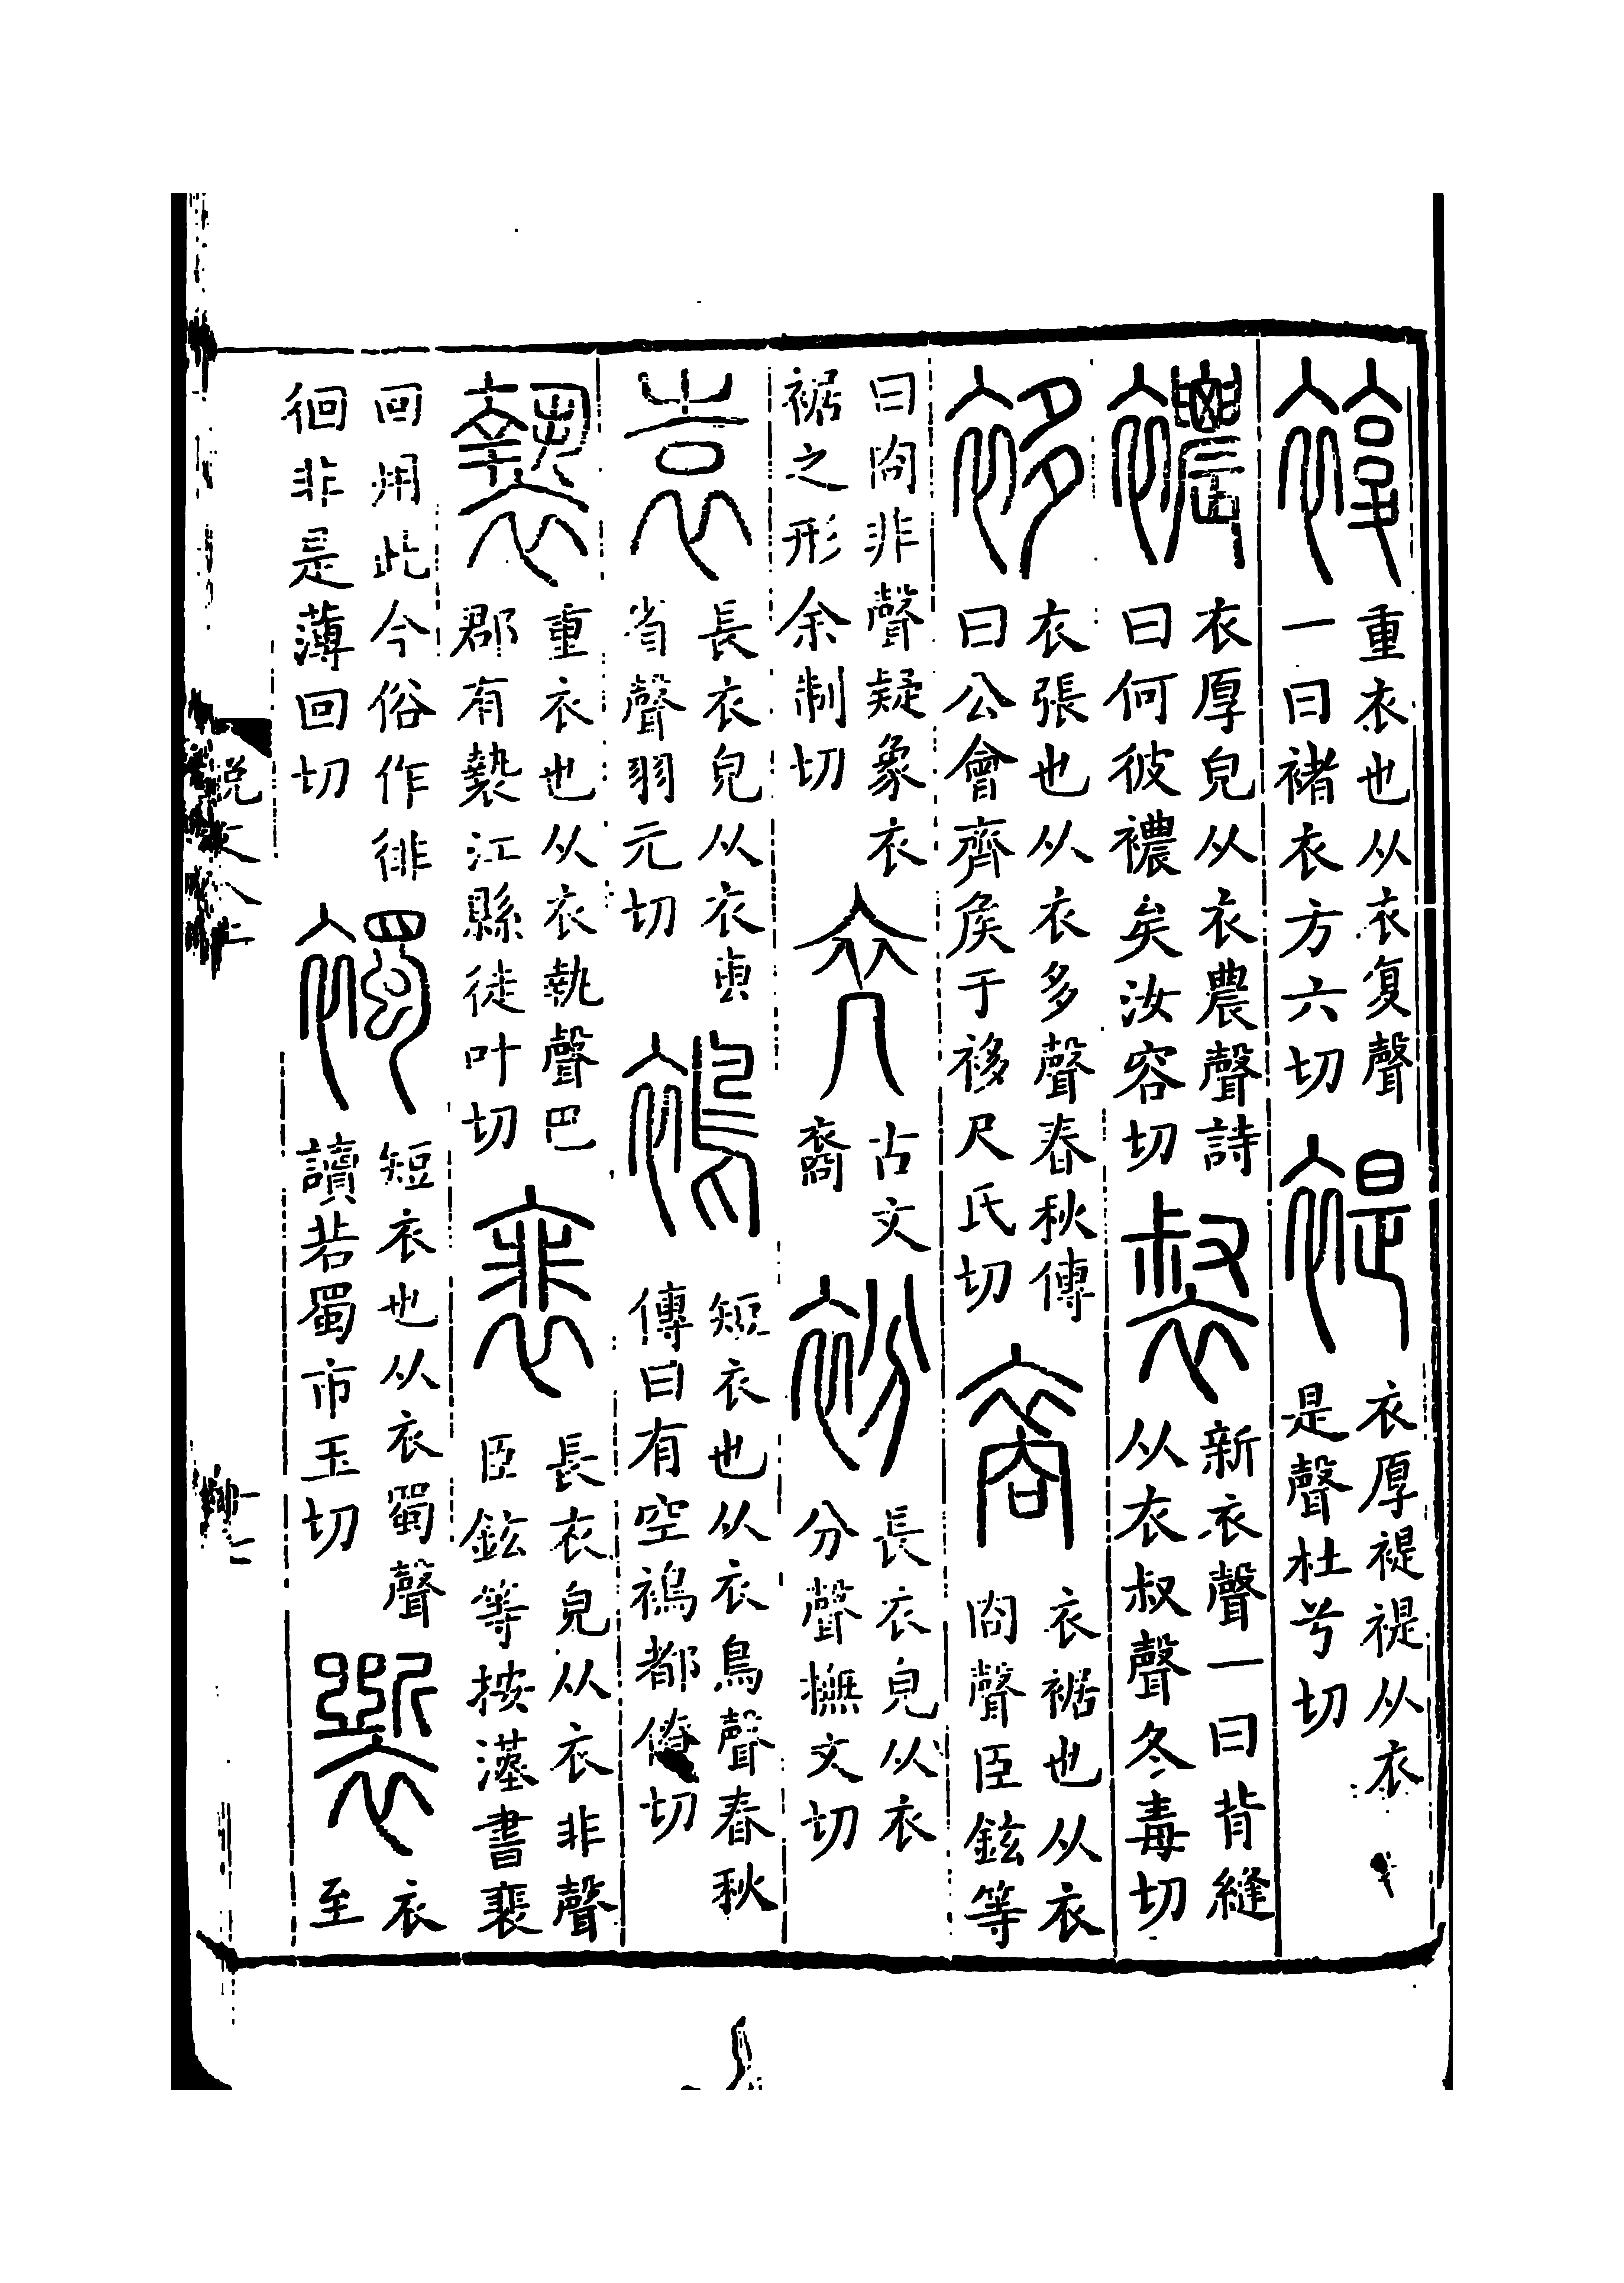 複 重衣也从衣复聲
一曰褚衣方六切
禔 衣厚禔禔从衣
是聲杜兮切
襛 衣厚皃从衣農聲詩
曰何彼襛矣汝容切
裻 新衣聲一曰背縫
从衣叔聲冬毒切
袳 衣張也从衣多聲春秋傳
曰公會齊矦于袳尺氏切
裔 衣裾也从衣
㕯聲臣鉉等
曰㕯非聲疑象衣
裾之形余制切
𠔁 古文
裔
衯 長衣皃从衣
分聲撫文切
袁 長衣皃从衣叀
省聲羽元切
裯 短衣也从衣鳥聲春秋
傳曰有空褭都僚切
褺 重衣也从衣執聲巴
郡有褺江縣徒叶切
裴 長衣皃从衣非聲
臣鉉等按漢書裴
回用此今俗作徘
徊非是薄回切
襡 短衣也从衣蜀聲
讀若蜀市玉切
䙱 衣
至
說文八上